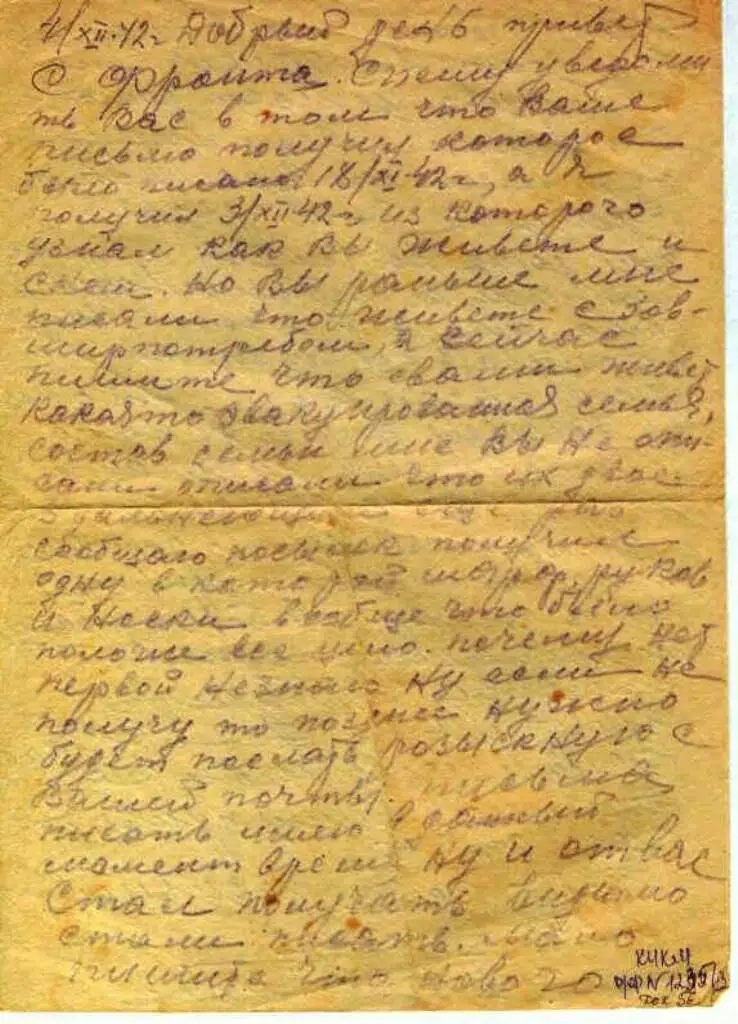 4/XII-42г Добрый день привет
с фронта. Спешу уведоми
ть вас в том что Ваше
письмо получил которое
было писано 18/XI-42г, а я
получил 3/XII 42г из которого
узнал как вы живете и
Но вы раньше мне
писали что живете с Зов-
а сейчас
пишите что с вами живет
какаято эвакуированная семья,
состав семьи мне вы не опи-
сали писали что их двое
сообщаю посылок получил
одну в которой махор, руков
и носки вообще что было
положе все цело. почему нет
первой незнаю ну если не
получу то позже нужно
будет послать розыскную с
Вашей почты. письма
писать имею в данный
момент время ну и от вас
стал получать видимо
стали писать. Мало
пишите что нового
КЧКМ
ОФ N 123